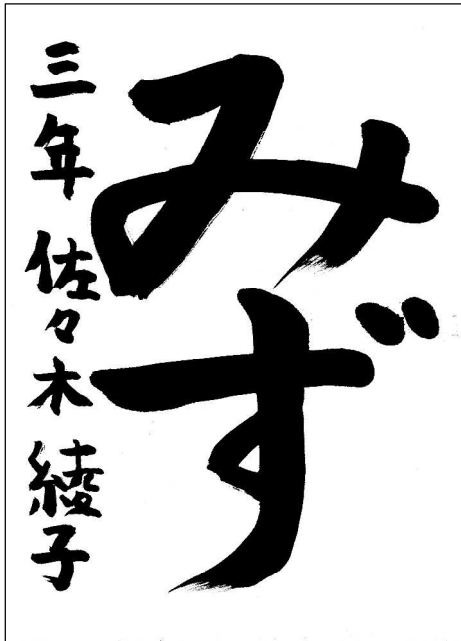 みず
三年 佐々木 綾子